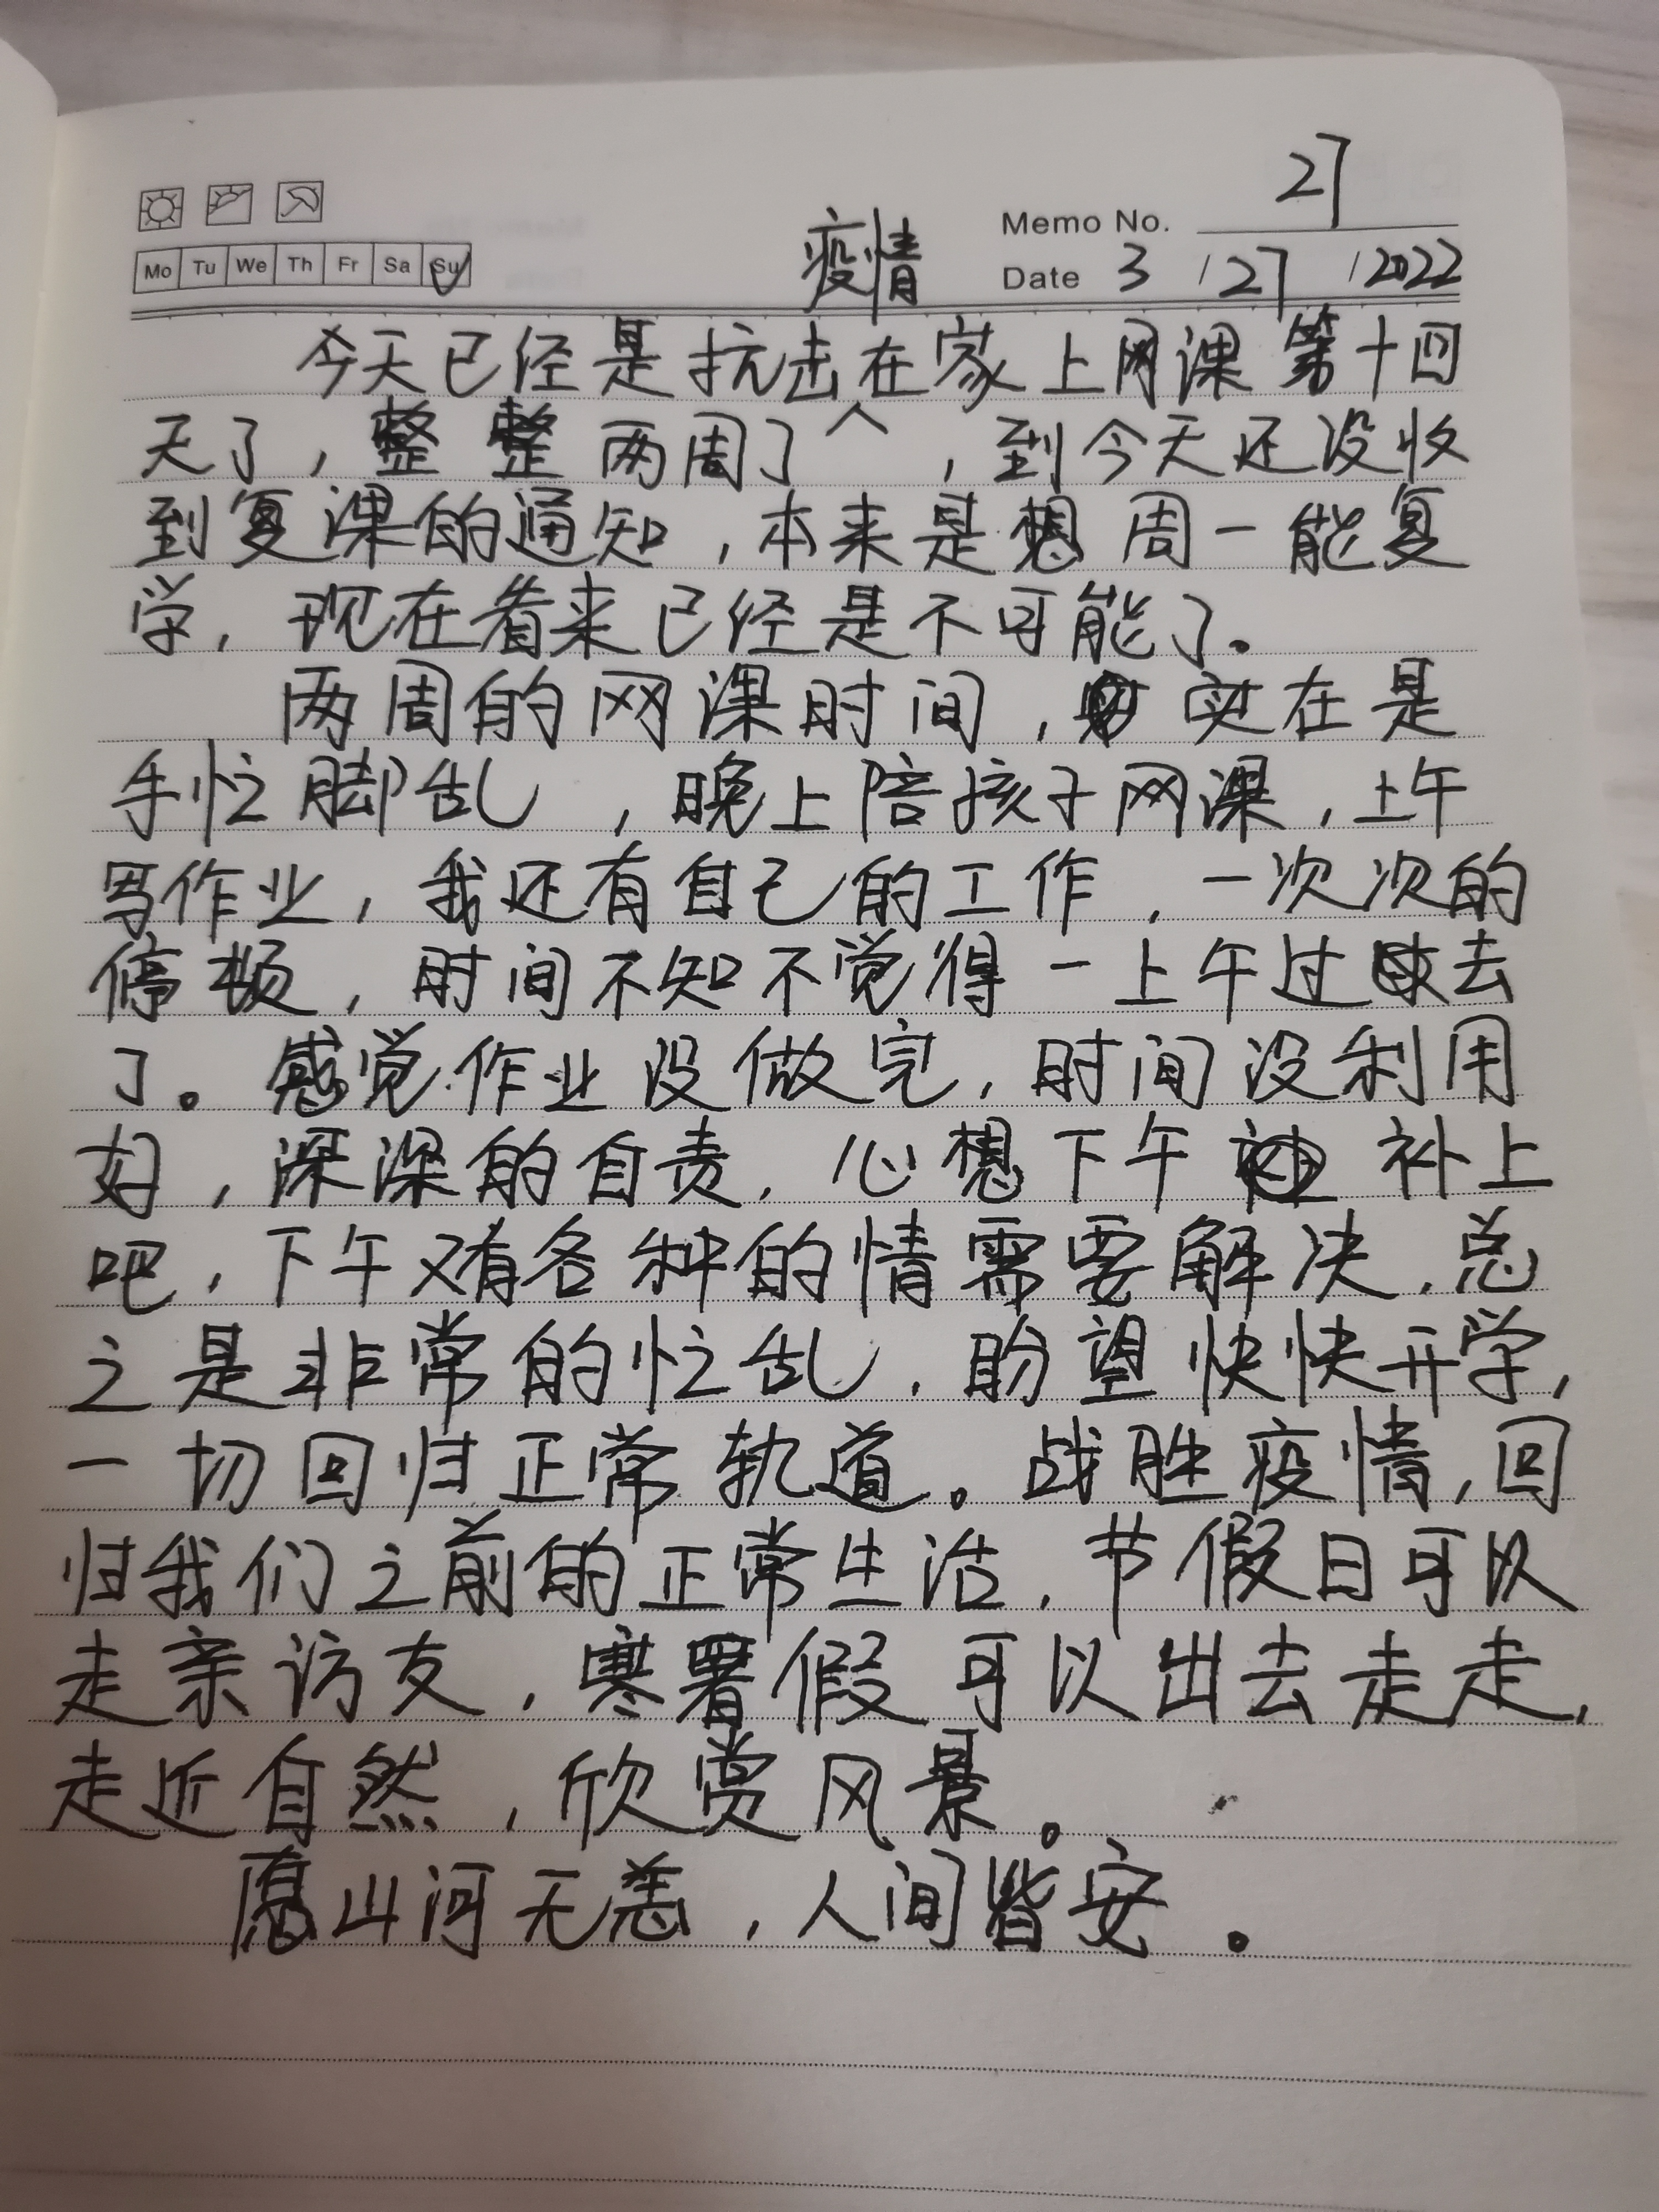 27
Memo No.
疫情
Date 3 / 27 / 2022
Mo Tu We Th Fr Sa Su
今天已经是抗击在家上网课第十四
天了，整整两周了，到今天还没收
到复课的通知，本来是想周一能复
学，现在看来已经是不可能了。
两周的网课时间，实在是
手忙脚乱，晚上陪孩子网课，上午
写作业，我还有自己的工作，一次次的
停顿，时间不知不觉得一上午过去
了。感觉作业没做完，时间没利用
好，深深的自责，心想下午补上
吧，下午又有各种的情需要解决，总
之是非常的忙乱，盼望快快开学，
一切回归正常轨道。战胜疫情，回
归我们之前的正常生活，节假日可以
走亲访友，寒署假可以出去走走，
走近自然，欣赏风景。
愿山河无恙，人间皆安。